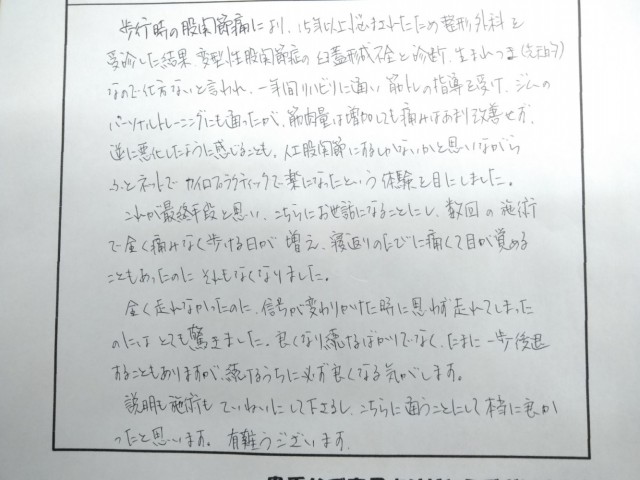 歩行時の股関節痛により、15年以上悩まされたため整形外科を
受診した結果、変形性股関節症の臼蓋形成不全と診断。生まれつき(先天的)
なので仕方ないと言われ、一年間リハビリに通い筋トレの指導を受け、ジムの
パーソナルトレーニングにも通ったが、筋肉量は増加しても痛みはあまり改善せず、
逆に悪化したように感じることも。人工股関節にするしかないかと思いながら
ふとネットでカイロプラクティックで楽になったという体験を目にしました。
これが最終手段と思い、こちらにお世話になることにし、数回の施術
で全く痛みなく歩ける日が増え、寝返りのたびに痛くて目が覚める
こともあったのにそれもなくなりました。
全く走れなかったのに、信号が変わりかけた時に思わず走れてしまった
のにはとても驚きました。良くなり続けるばかりでなく、たまに一歩後退
することもありますが、続けるうちに必ず良くなる気がします。
説明も施術もていねいにして下さるし、こちらに通うことにして本当に良か
ったと思います。有難うございます。